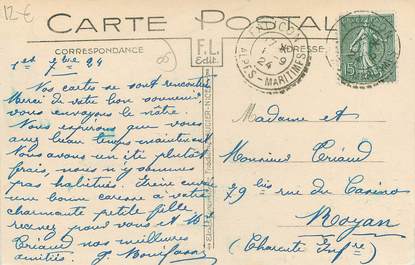 12-€
CARTE POSTALE
CORRESPONDANCE
F.L.
Edit.
ADRESSE
8
1er 7bre 24
Nos cartes se sont rencontrées
Merci de votre bon souvenir
vous envoyons le nôtre.
Nous espérons que vous
avez beau temps maintenant
Nous avons un été plutôt
frais, nous n'y sommes
pas habitués. Irène envoie
une bonne caresse à votre
charmante petite fille
recevez pour vous et Mr
Criaud nos meilleures
amitiés.
ALPES-MARITIMES
24
15
Madame et
Monsieur Criaud
79 bis rue du Casino
Royan
(Charente Infre)